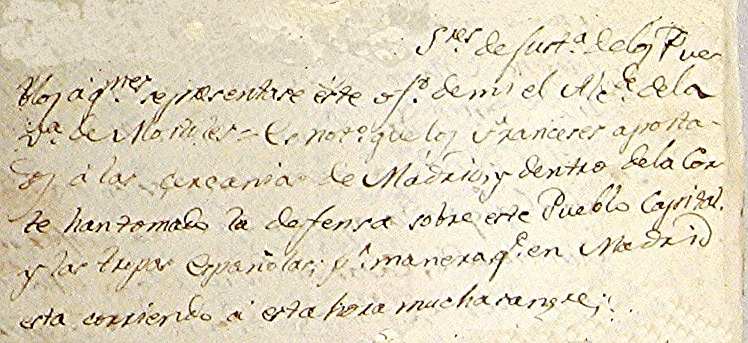 S.res de Just.a de los Pue
blos á q.nes se presentase éste of.o de mi el Alc.e de la
v.a de Mostoles = Es not.o que los Franceses aposta-
dos á las cercanias de Madrid, y dentro de la Cor
te han tomado la defensa sobre este Pueblo Capital.
y las tropas españolas; p.r manera q.e en Madrid
esta corriendo á esta hora mucha sangre;